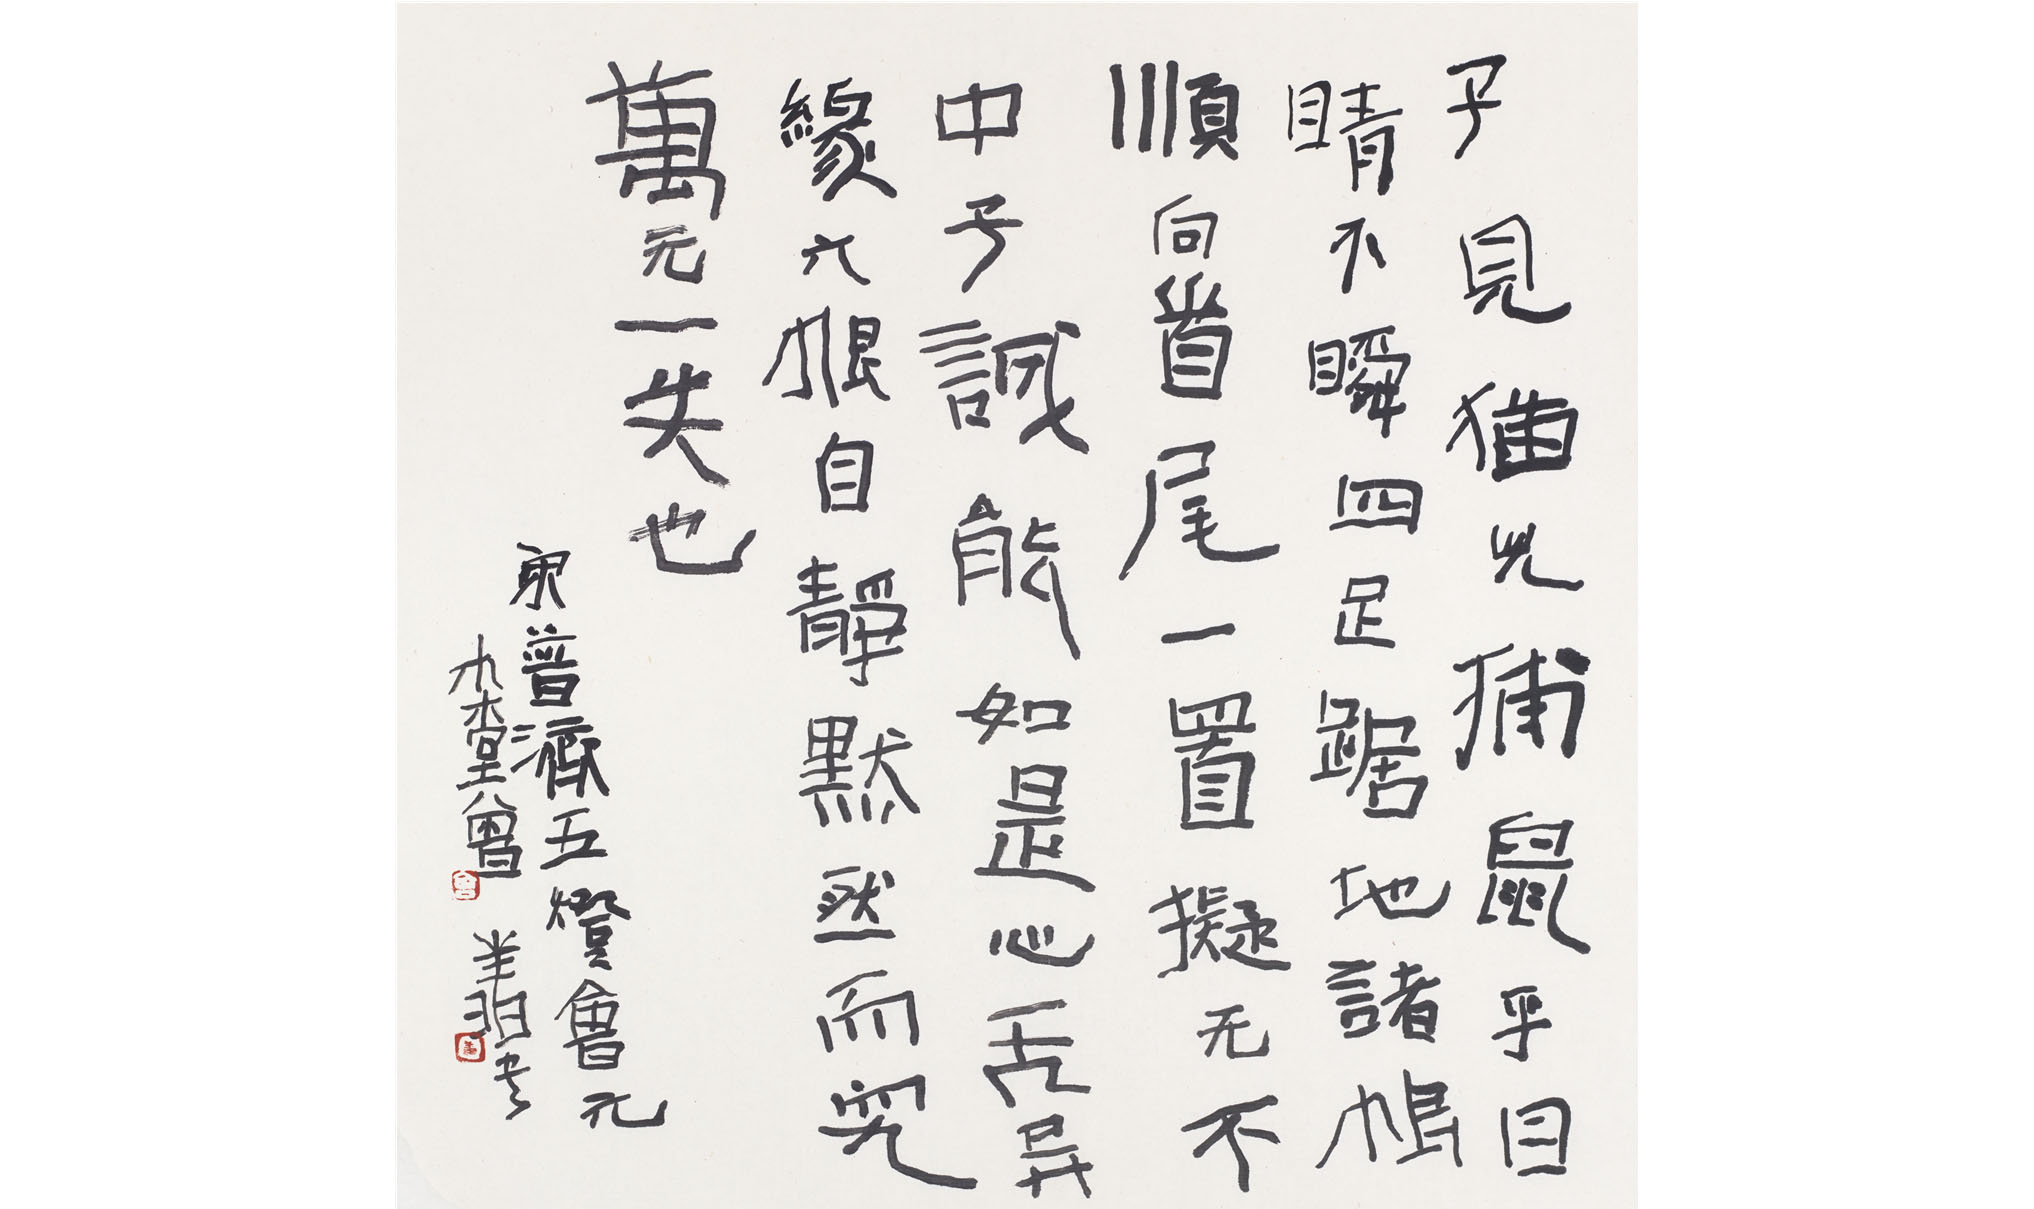 子見猫兒捕鼠乎目
睛不瞬四足踞地諸根
順向首尾一置擬无不
中子誠能如是心无異
緣六根自靜默然而究
萬无一失也
宋普濟五燈會元
木木堂曾翔书